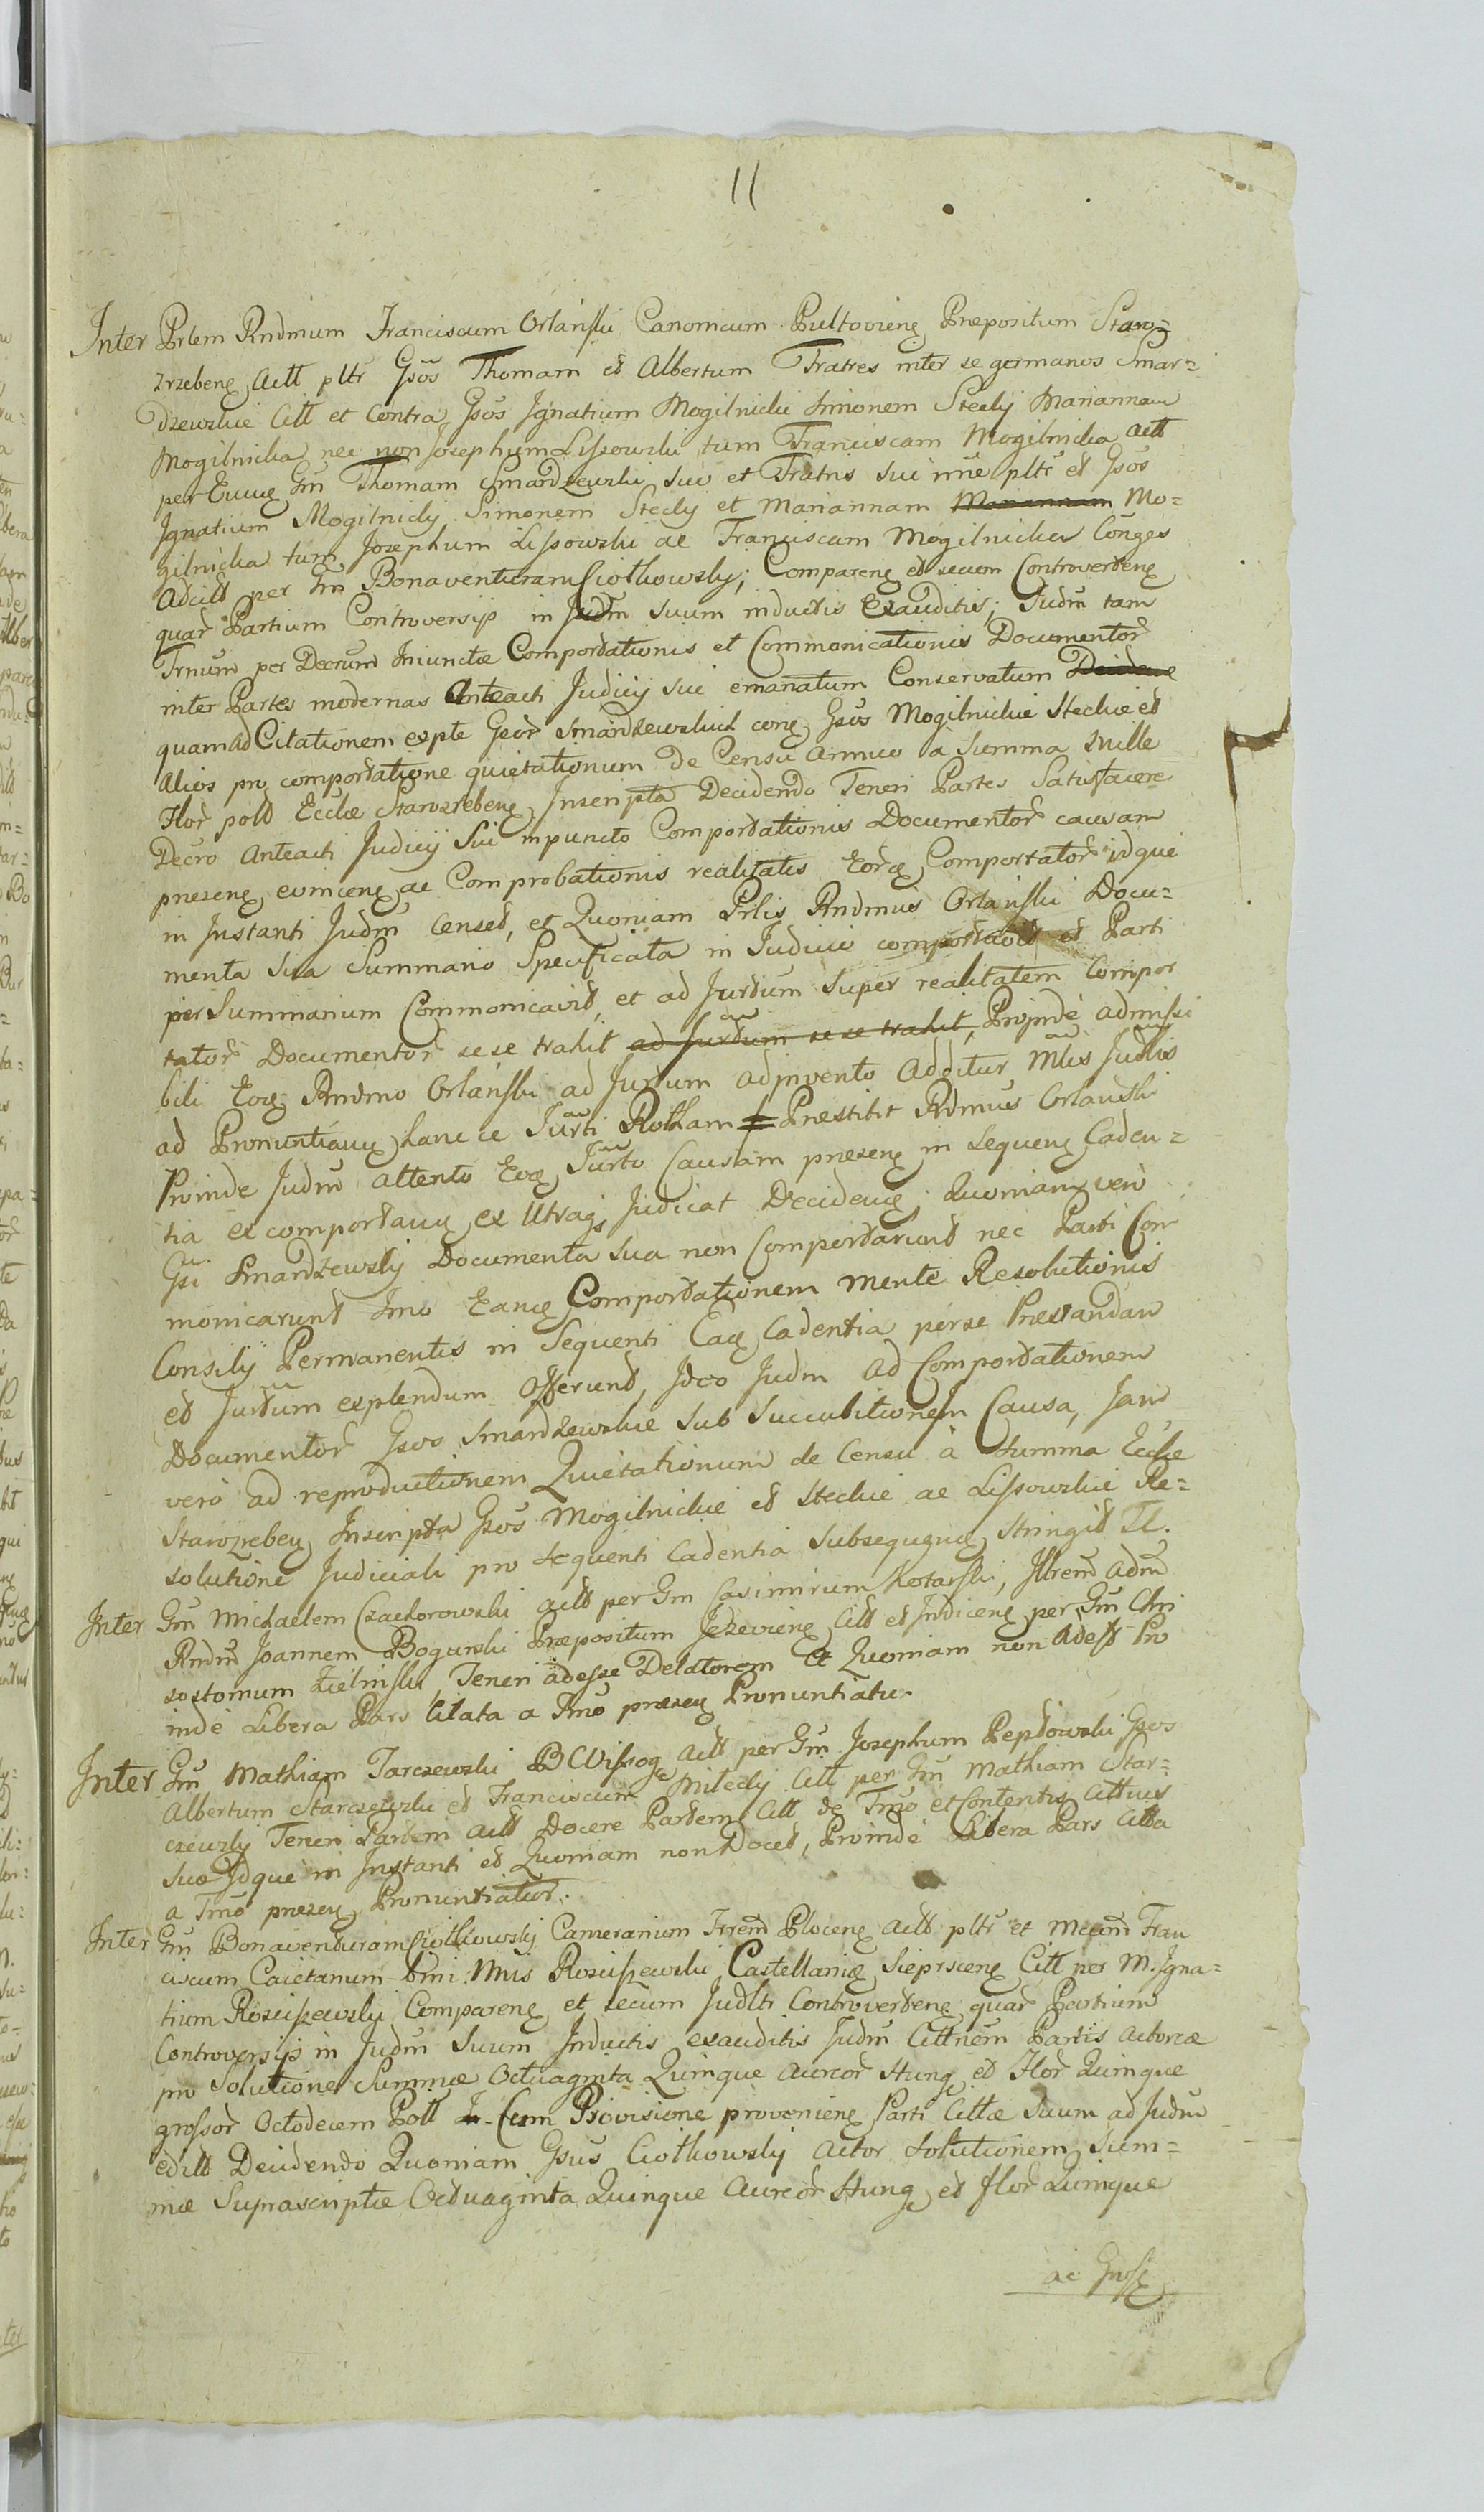 11
Inter Prlem Rndmum Franciscum Orlański Canonicum Pultovien Præpositum Staro=
zrzeben Actt pltr Gsos Thomam et Albertum Fratres inter se germanos Smar=
dzewskie Citt et Contra Gsos Ignatium Mogilnicki Simonem Stecky Mariannam
Mogilnicka nec non Josephum Lissowski tum Franciscam Mogilnicka Actt
per Gm Thomam Smardzewski suo et Fratris sui nne pltr et Gsos
Ignatium Mogilnicky Simonem Stecky et Mariannam Mariannam Mo=
gilnicka tum Josephum Lissowski ac Franciscam Mogilnicka Conges
Adcitt per Gm Bonaventuram Ciołkowsky; Comparen et secum Controverten
quar Partium Controversijs in Judm suum inductis Exauditis; Judm tam
Trnum per Decrum Iniunctæ Comportationis et Commonicationis Documentor
inter Partes modernas Anteacti Judicij sui emanatum Conservatum
quam ad Citationem ex pte Gsor Smardzewskich con Gsos Mogilnickie Steckie et
Alios pro comportatione quietationum de Censu annuo a Summa Mille
Flor poll Ecclæ Starozreben Inscripta Decidendo Teneri Partes Satisfacere
Decro Anteacti Judicij Sui in puncto Comportationis Documentor causam
præsen evincen ac Comprobationis realitatis Eor Comportator idque
in Instanti Judm Censet, et Quoniam Prlis Rndmus Orlański Docu=
menta sua Summario Specificata in Judicio comportavit et Parti
per Summarium Commonicavit, et ad Jurtum super realitatem Compor
tator Documentor sese trahit ad Jurtum sese trahit, Proinde admissi
bili Eo Rndmo Orlański ad Jurtum adinvento Additur Mlis Judlis
ad Pronuntian hance Jurti Rotham Præstitit Rdmus Orlański
Proinde Judm attento Eo Jurto Causam præsen in Sequen Caden=
tia ex comportan ex Utraq Judicat Deciden Quoniam vero
Gsi Smardzewsky Documenta sua non Comportarunt nec Parti Com
monicarunt Imo Ean Comportationem mente Resolutionis
Consilij Permanentis in Sequenti Ea Cadentia per se Præstandam
et Jurtum explendum offerunt, Ideo Judm ad Comportationem
Documentor Gsos Smardzewskie sub Succubitionem Causa, Jam
vero ad reproductionem Quietationum de Censu à Summa Ecclæ
Starozreben Inscripta Gsos Mogilnickie et Steckie ac Lissowskie Re=
solutione Judiciali pro sequenti Cadentia Subsequen Stringit
Inter Gm Michaelem Czachorowski actt per Gm Casimirum Kotarski, Illrem Adm
Rndm Joannem Bogurski Præpositum Jezevien Citt et Indicen per Gm Chri
sostomum Zielinski, Teneri adesse Delatorem Et Quoniam non Adest Pro
inde Libera Pars Citata a Tmo præsen Pronuntiatur
Inter Gm Mathiam Tarczewski B C Vissog Actt per Gm Josephum Peptowski Gsos
Albertum Starczewski et Franciscum Milecky Citt per Gm Mathiam Star=
czewsky Teneri Partem Actt Docere Partem Citt de Tmo et Contentis Cittnis
suæ Idque in Instanti et Quoniam non Docet, Proinde Libera Pars Citta
a Tmo præsen Pronuntiatur.
Inter Gm Bonaventuram Ciołkowsky Camerarium Trrem Plocen Actt pltr et Mcum Fran
ciscum Caietanum bini Mnis Rosciszewski Castellanię Sieprscen Citt per M. Igna=
tium Rosciszewski Comparen et secum Judlti Controverten quar Partium
Controversijs in Judm Suum Inductis exauditis Judm Cittnem Partis Actoreæ
pro Solutione Summæ Octuaginta Quinque aureor Hung et Flor Quinque
grossor Octodecem Poll Cum Provisione provenien Parti Cittæ Suum ad Judm
edill Decidendo Quoniam Gsus Ciołkowsky Actor Solutionem Sum=
mæ Suprascriptæ Octuaginta Quinque Aureor Hung et flor Quinque
ac Gross